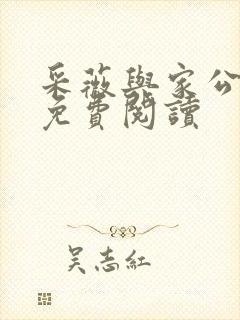 采薇與家公
免費閱讀
吴志紅